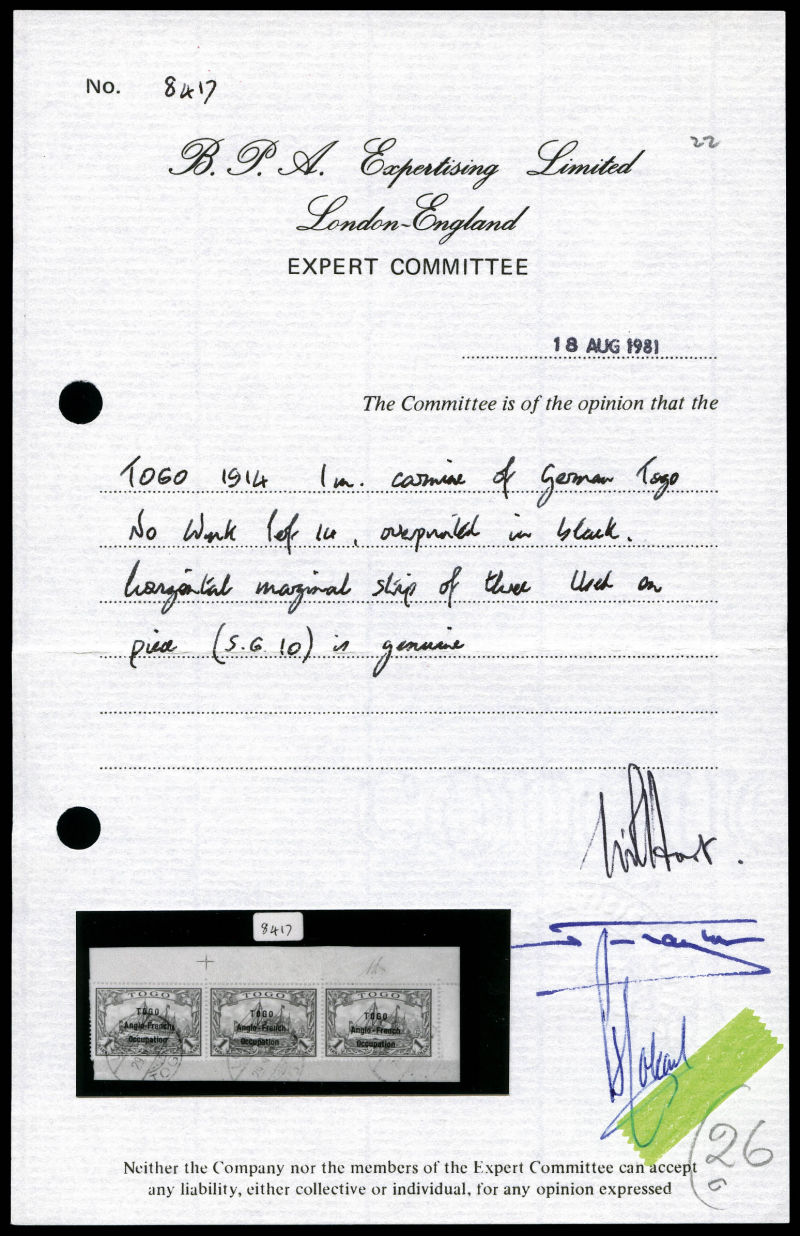 No. 8417
22
B. P. A. Expertising Limited
London-England
EXPERT COMMITTEE
18 AUG 1981
The Committee is of the opinion that the
TOGO 1914 1m. carmine of German Togo
No Wmk Perf 14, overprinted in black.
horizontal marginal strip of three used on
piece (S.G. 10) is genuine
8417
TOGO TOGO TOGO
TOGO TOGO TOGO
Anglo-French Anglo-French Anglo-French
Occupation Occupation Occupation
1 1 1 1 1 1
26
Neither the Company nor the members of the Expert Committee can accept
any liability, either collective or individual, for any opinion expressed